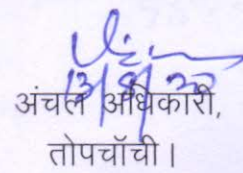 13/8/20
अंचल अधिकारी,
तोपचाँची।